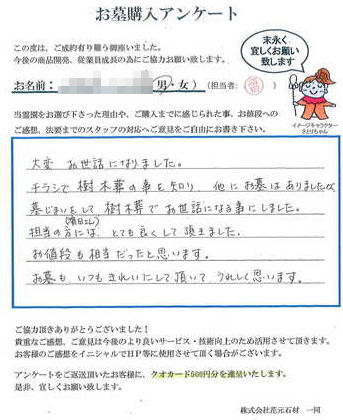 お墓購入アンケート
この度は、ご成約有り難う御座いました。
今後の商品開発、従業員成長の為にご協力お願い致します。
末永く
宜しくお願い
致します
お名前：
男・女）（担当者：
イメージキャラクター
さとりちゃん
当霊園をお選び下さった理由や、ご購入までに感じられた事、お値段への
ご感想、法要までのスタッフの対応へご意見をご自由にお書き下さい。
大変 お世話になりました。
チラシで 樹木葬の事を知り、他にお墓はありましたが
墓じまいをして 樹木葬でお世話になる事にしました。
担当の方には、とても良くして頂きました。
お値段も相当だったと思います。
お墓も いつもきれいにして頂いて うれしく思います。
ご協力頂きありがとうございました！
貴重なご感想、ご意見は今後のより良いサービス・技術向上のため活用させて頂きます。
お客様のご感想をイニシャルでHP等に使用させて頂く場合がございます。
アンケートをご返送頂いたお客様に、クオカード500円分を進呈いたします。
是非、宜しくお願い致します。
株式会社花元石材 一同